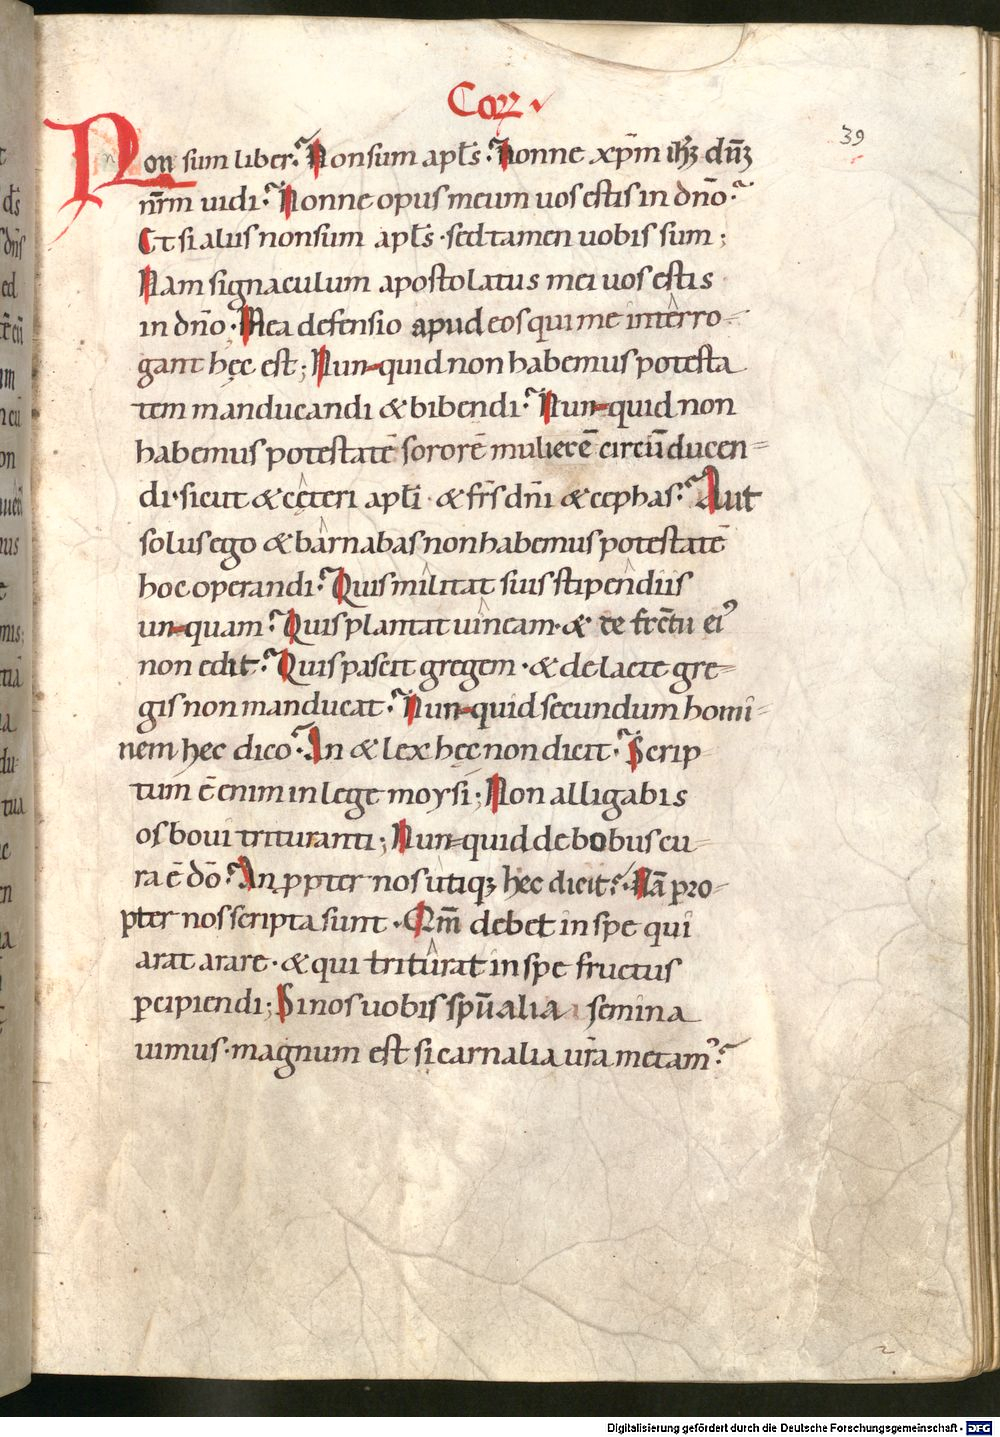 Corꝝ
39
Non sum liber? Non sum apl̄s? Nonne xp̄m ihꝫ dn̄ꝫ
nr̄m uidi? Nonne opus meum uos estis in dn̄o?
Et si aliis non sum apl̄s · sed tamen uobis sum;
Nam signaculum apostolatus mei uos estis
in dn̄o · Mea defensio apud eos qui me interro-
gant hęc est; Nun-quid non habemus potesta
tem manducandi & bibendi? Nun-quid non
habemus potestatē sororē mulierē circūducen-
di · sicut & cęteri apl̄i · & fr̄s dn̄i & cephas? Aut
solus ego & barnabas non habemus potestatē
hoc operandi? Quis militat suis stipendiis
un-quam? Quis plantat uineam · & de fructu ei᾿
non edit? Quis pascit gregem · & de lacte gre-
gis non manducat? Nun-quid secundum homi-
nem hęc dico? An & lex hęc non dicit? Scrip-
tum ē enim in lege moysi; Non alligabis
os boui trituranti; Nun-quid de bobus cu-
ra ē dō? An ꝓpter nos utiqꝫ hec dicit? Nā pro-
pter nos scripta sunt · Qm̄ debet in spe qui
arat arare · & qui triturat in spe fructus
ꝑcipiendi; Si nos uobis spūalia semina
uimus · magnum est si carnalia ur̄a metam᾿?
Digitalisierung gefördert durch die Deutsche Forschungsgemeinschaft - DFG